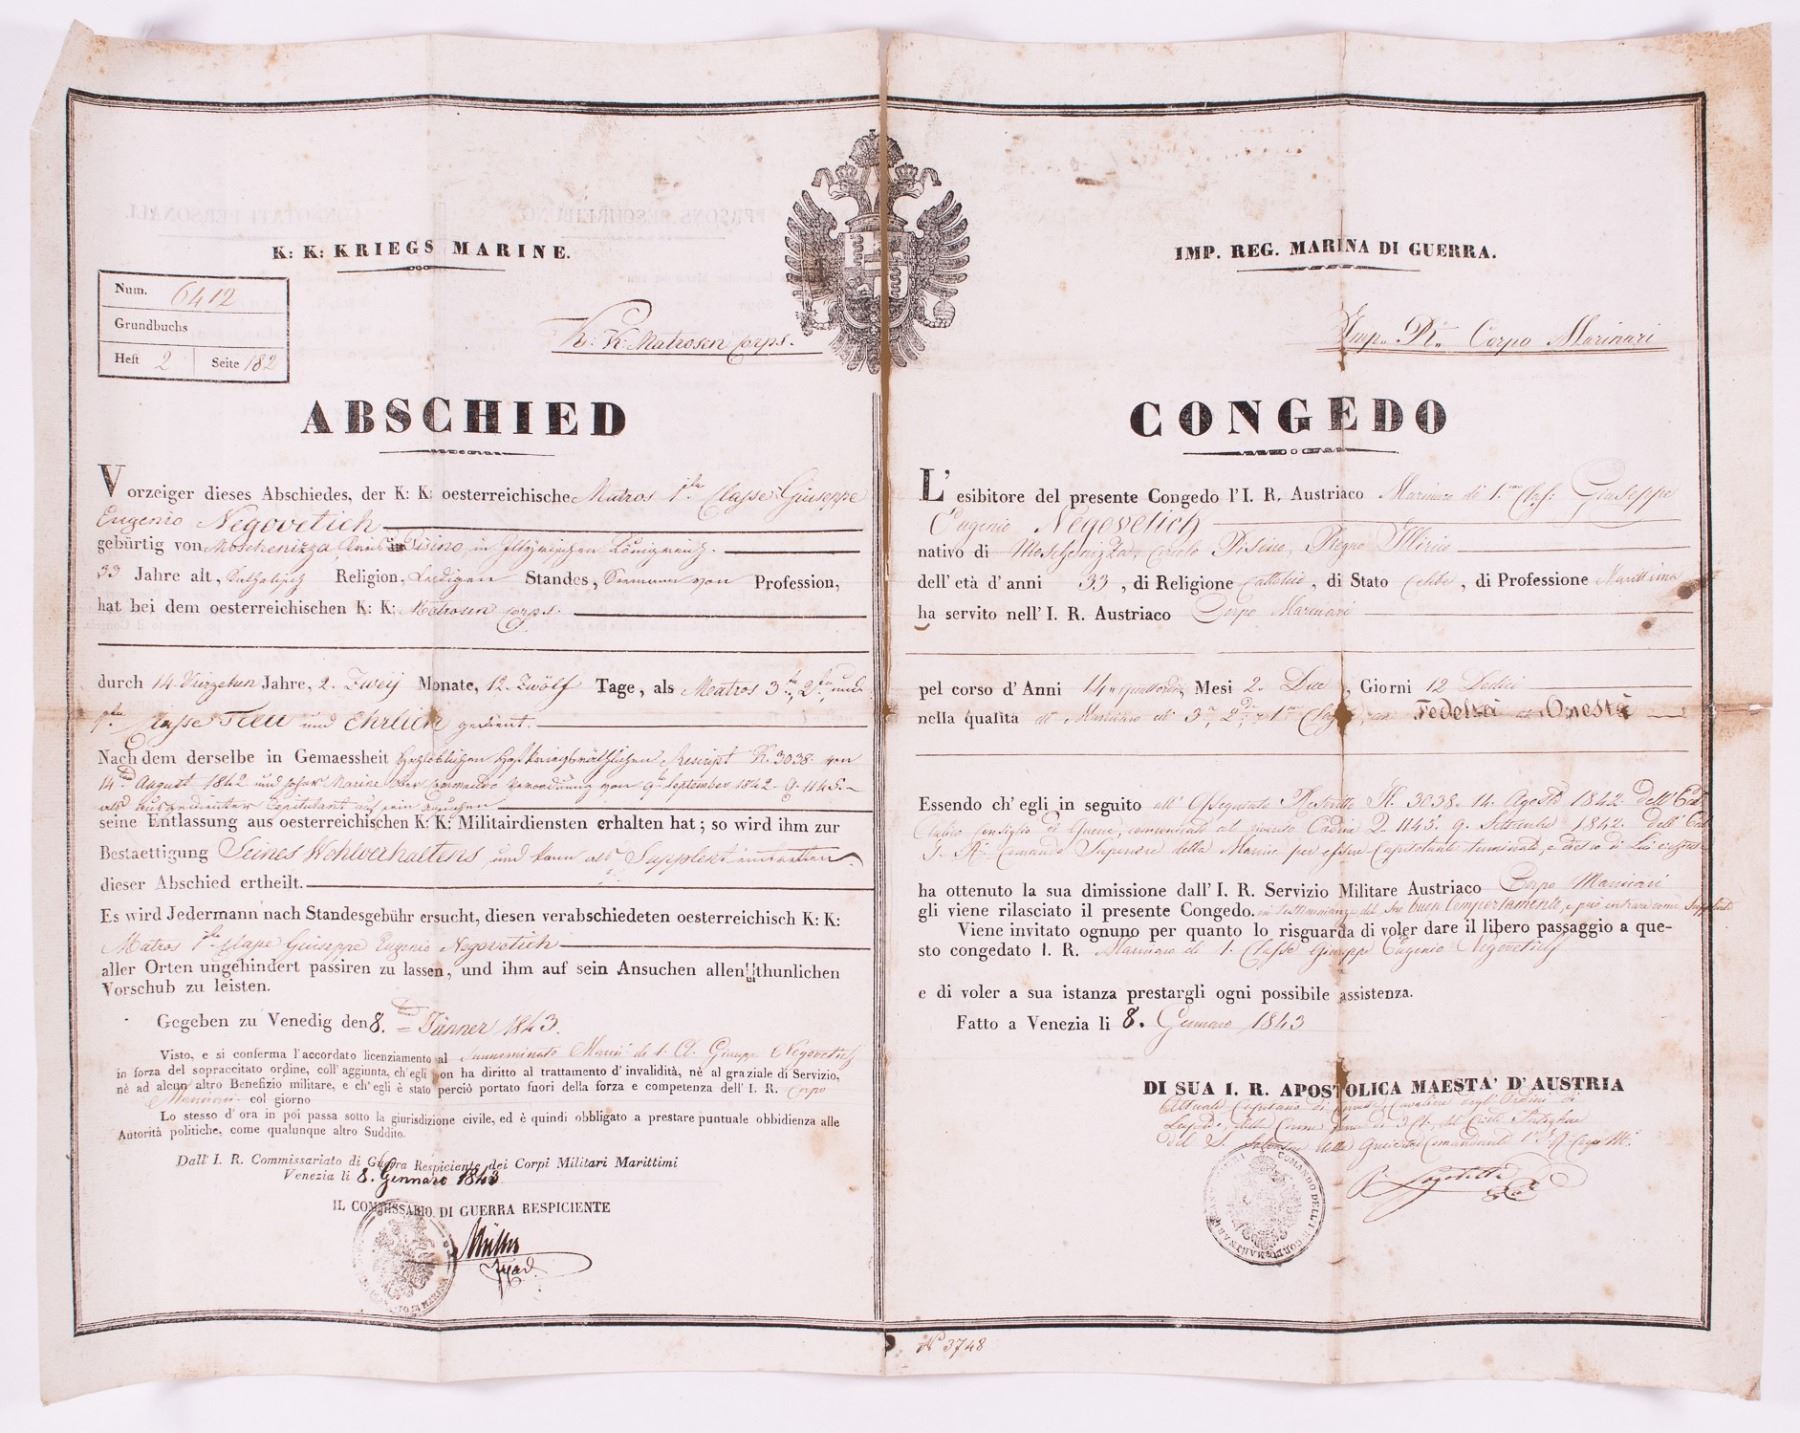 K: K: KRIEGS MARINE.
Num. 6412
Grundbuchs
Heft 2 Seite 182
K. K. Matrosen Corps.
ABSCHIED
Vorzeiger dieses Abschiedes, der K: K: oesterreichische Matros 1ter Classe Giuseppe
Eugenio Negovetich
gebürtig von Moschenizza, Kreis in Pisino, in Illyrischen Königreich.
33 Jahre alt, Katholisch Religion, Ledigen Standes, Seemann von Profession,
hat bei dem oesterreichischen K: K: Matrosen Corps.
durch 14 Vierzehn Jahre, 2. Zweij Monate, 12. Zwölf Tage, als Matros 3ter, 2ter und
1ter Classe Treu und Ehrlich gedient.
Nachdem derselbe in Gemaessheit hochlöblichen Hofkriegsräthlichen Rescript N. 3038 von
14. August 1842 und hoher Marine Ober Commando Verordnung vom 9. September 1842. Q. 1145.
als ausgedienter Capitulant auf sein Ansuchen
seine Entlassung aus oesterreichischen K: K: Militairdiensten erhalten hat; so wird ihm zur
Bestaettigung Seines Wohlverhaltens und kann als Supplent eintretten
dieser Abschied ertheilt.
Es wird Jedermann nach Standesgebühr ersucht, diesen verabschiedeten oesterreichisch K: K:
Matros 1ter Classe Giuseppe Eugenio Negovetich
aller Orten ungehindert passiren zu lassen, und ihm auf sein Ansuchen allen thunlichen
Vorschub zu leisten.
Gegeben zu Venedig den 8. Jänner 1843.
Visto, e si conferma l'accordato licenziamento al sunnominato Marin° di 1. Cl. Giuseppe Negovetich
in forza del sopraccitato ordine, coll'aggiunta, ch'egli non ha diritto al trattamento d'invalidità, nè al graziale di Servizio,
nè ad alcun altro Benefizio militare, e ch'egli è stato perciò portato fuori della forza e competenza dell'I. R. Corpo
Marinari col giorno
Lo stesso d'ora in poi passa sotto la giurisdizione civile, ed è quindi obbligato a prestare puntuale obbidienza alle
Autorità politiche, come qualunque altro Suddito.
Dall'I. R. Commissariato di Guerra Respiciente dei Corpi Militari Marittimi
Venezia li 8. Gennaro 1843
IL COMMISSARIO DI GUERRA RESPICIENTE
IMP. REG. MARINA DI GUERRA.
Imp. R. Corpo Marinari
CONGEDO
L'esibitore del presente Congedo l'I. R. Austriaco Marinaro di 1. Class: Giuseppe
Eugenio Negovetich
nativo di Moschenizza, Circolo Pisino, Regno Illirio
dell'età d'anni 33, di Religione Cattolico, di Stato Celibe, di Professione Marittima
ha servito nell'I. R. Austriaco Corpo Marinari
pel corso d'Anni 14 quattordici, Mesi 2. Due, Giorni 12 Dodici
nella qualità di Marinaro di 3a, 2da, 1ma Classe, con Fedeltà ed Onestà
Essendo ch'egli in seguito all'Ossequiato Rescritto N. 3038. 14. Agosto 1842. dell'Ecc.
Aulico Consiglio di Guerra, comunicato col riverito Ordine Q. 1145. 9. Settembre 1842. dell'Ecc.
I. R. Comando Superiore della Marina per essere Capitolante terminato, e dietro di Lui
ha ottenuto la sua dimissione dall'I. R. Servizio Militare Austriaco Corpo Marinari
gli viene rilasciato il presente Congedo. in testimonianza del suo buon Comportamento, e può entrare come Supplente
Viene invitato ognuno per quanto lo risguarda di voler dare il libero passaggio a que-
sto congedato I. R. Marinaro di 1. Classe Giuseppe Eugenio Negovetich
e di voler a sua istanza prestargli ogni possibile assistenza.
Fatto a Venezia li 8. Gennaro 1843
DI SUA I. R. APOSTOLICA MAESTA' D'AUSTRIA
N° 3748